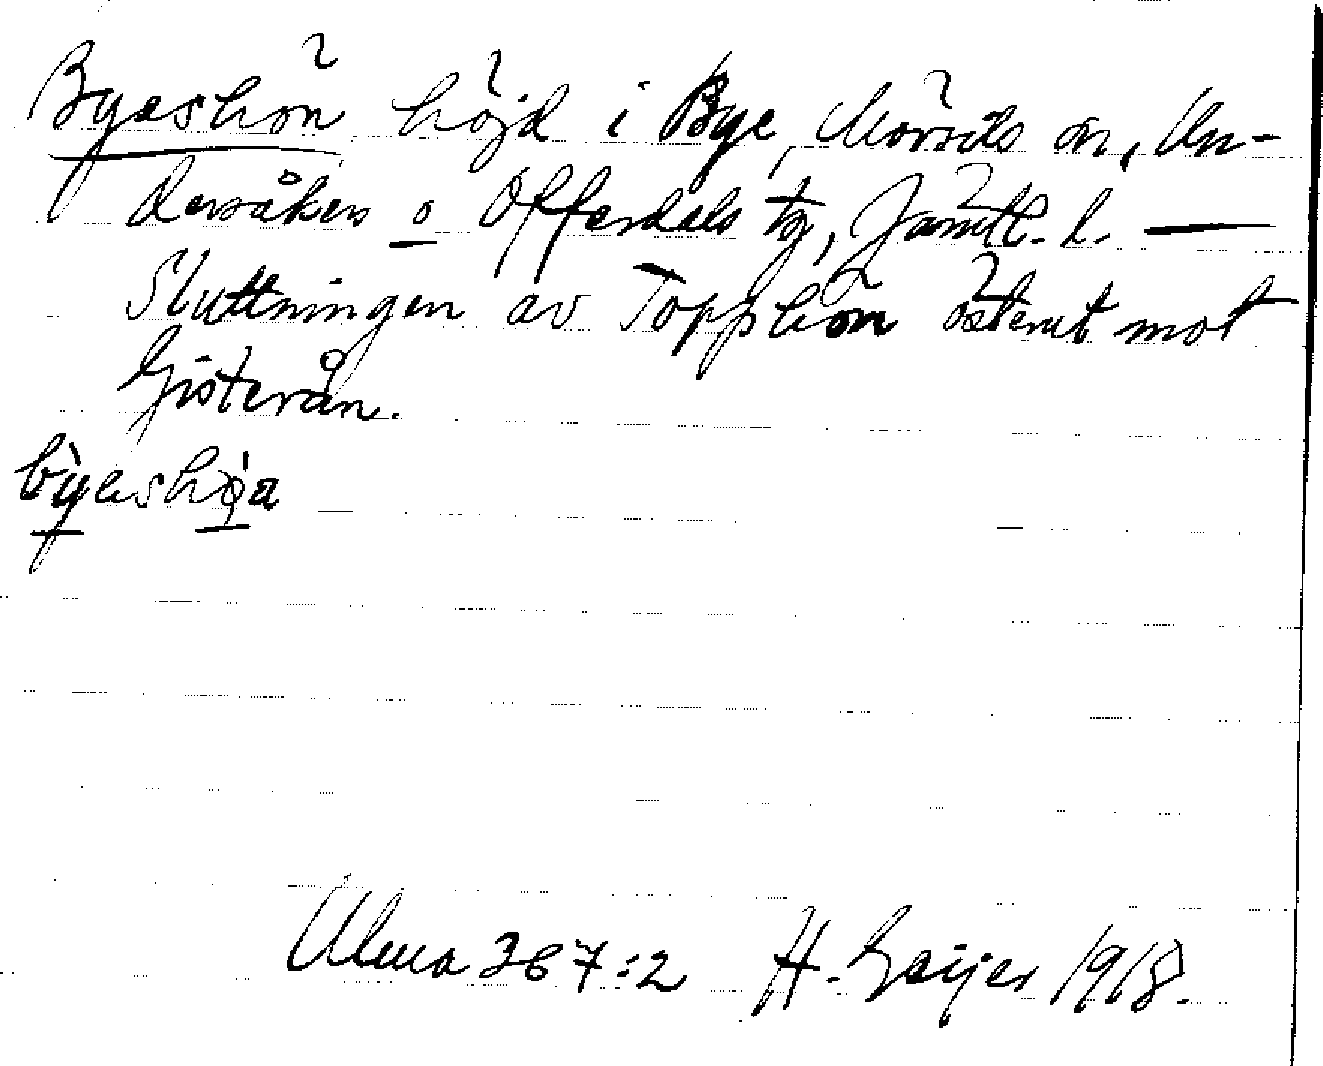 Byeshön höjd i Bye, Mörsils sn, Un-
dersåkers o Offerdals tg, Jämtl. l. —
Sluttningen av Topphön österut mot
Gisterån.
byeshøa
Ulma 367:2 H. Geijer 1918.